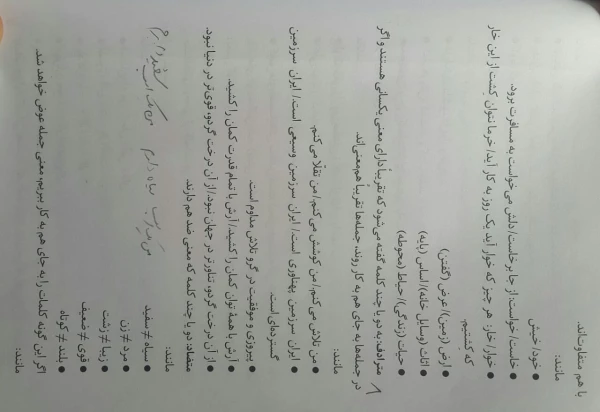 با هم متفاوت‌اند
مانند:
● خود/ خیش
● خاست/ خواست: از جا برخاست/ دلش می‌خواست به مسافرت برود.
● خوار/ خار: هر چیز که خوار آید یک روز به کار آید/ خرما نتوان کشت از این خار
که کشتیم.
● ارض (زمین)/ عرض (گفتن)
● اثاث (وسایل خانه)/ اساس (پایه)
● حیات (زندگی)/ حیاط (محوطه)
مترادف: به دو یا چند کلمه گفته می‌شود که تقریباً دارای معنی یکسانی هستند و اگر
در جمله‌ها به جای هم به کار روند، جمله‌ها تقریباً هم‌معنی‌اند.
مانند:
● من تلاش می‌کنم/ من کوشش می‌کنم/ من تقلّا می‌کنم.
● ایران سرزمین پهناوری است./ ایران سرزمین وسیعی است./ ایران سرزمین
گسترده‌ای است.
● پیروزی و موفقیت در گرو تلاش مداوم است.
● آرش با همهٔ توان کمان را کشید./ آرش با تمام قدرت کمان را کشید.
● از آن درخت گردو، تناورتر در جهان نبود./ از آن درخت گردو، قوی‌تر در دنیا نبود.
متضاد: دو یا چند کلمه که معنی ضد هم دارند.
مانند:
● سیاه ≠ سفید
● مرد ≠ زن
● زیبا ≠ زشت
● قوی ≠ ضعیف
● بلند ≠ کوتاه
من یک اسب سفید دارم
سیاه دارم
اگر این گونه کلمات را به جای هم به کار ببریم، معنی جمله عوض خواهد شد.
مانند: